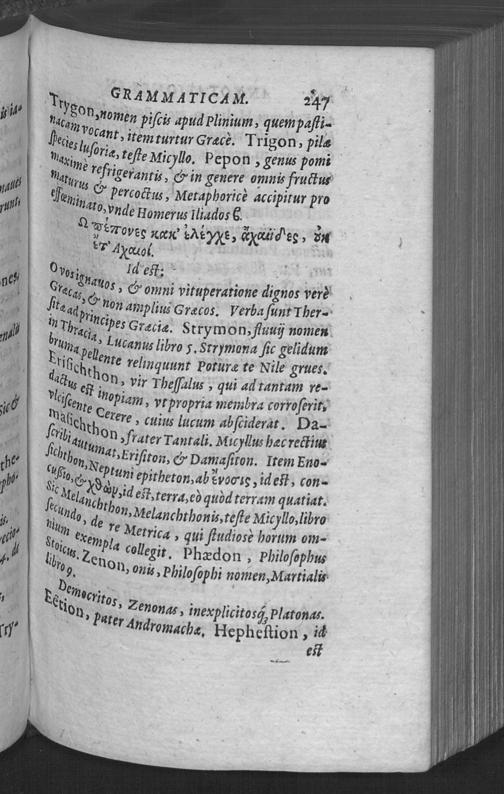 GRAMMATICAM. 247
Trygon, nomen piscis apud Plinium, quem pasti-
nacam vocant, item turtur Græcè. Trigon, pilæ
species lusoriæ, teste Micyllo. Pepon, genus pomi
maximè refrigerantis, & in genere omnis fructus
maturus & percoctus, Metaphoricè accipitur pro
effœminato, vnde Homerus Iliados ϐ.
Ω πέπονες κακ' ἐλέγχε, ἀχαιίδες, ὐκ
ἐτ' Αχαιοί.
Id est;
O vos ignauos, & omni vituperatione dignos verè
Græcas, & non amplius Græcos. Verba sunt Ther-
sitæ ad principes Græciæ. Strymon, fluuij nomen
in Thracia, Lucanus libro 5. Strymona sic gelidum
bruma pellente relinquunt Poturæ te Nile grues.
Erisichthon, vir Thessalus, qui ad tantam re-
dactus est inopiam, vt propria membra corroserit,
vlciscente Cerere, cuius lucum absciderat. Da-
masichthon, frater Tantali. Micyllus hæc rectius
scribi autumat, Erisiton, & Damasiton. Item Eno-
sichthon, Neptuni epitheton, ab ἔνοσις, id est, con-
cussio, & χθὼν, id est, terra, eò quòd terram quatiat.
Sic Melanchthon, Melanchthonis, teste Micyllo, libro
secundo, de re Metrica, qui studiosè horum om-
nium exempla collegit. Phædon, Philosophus
Stoicus. Zenon, onis, Philosophi nomen, Martialis
libro 9.
Democritos, Zenonas, inexplicitosq́; Platonas.
Eëtion, pater Andromachæ. Hephestion, id
est